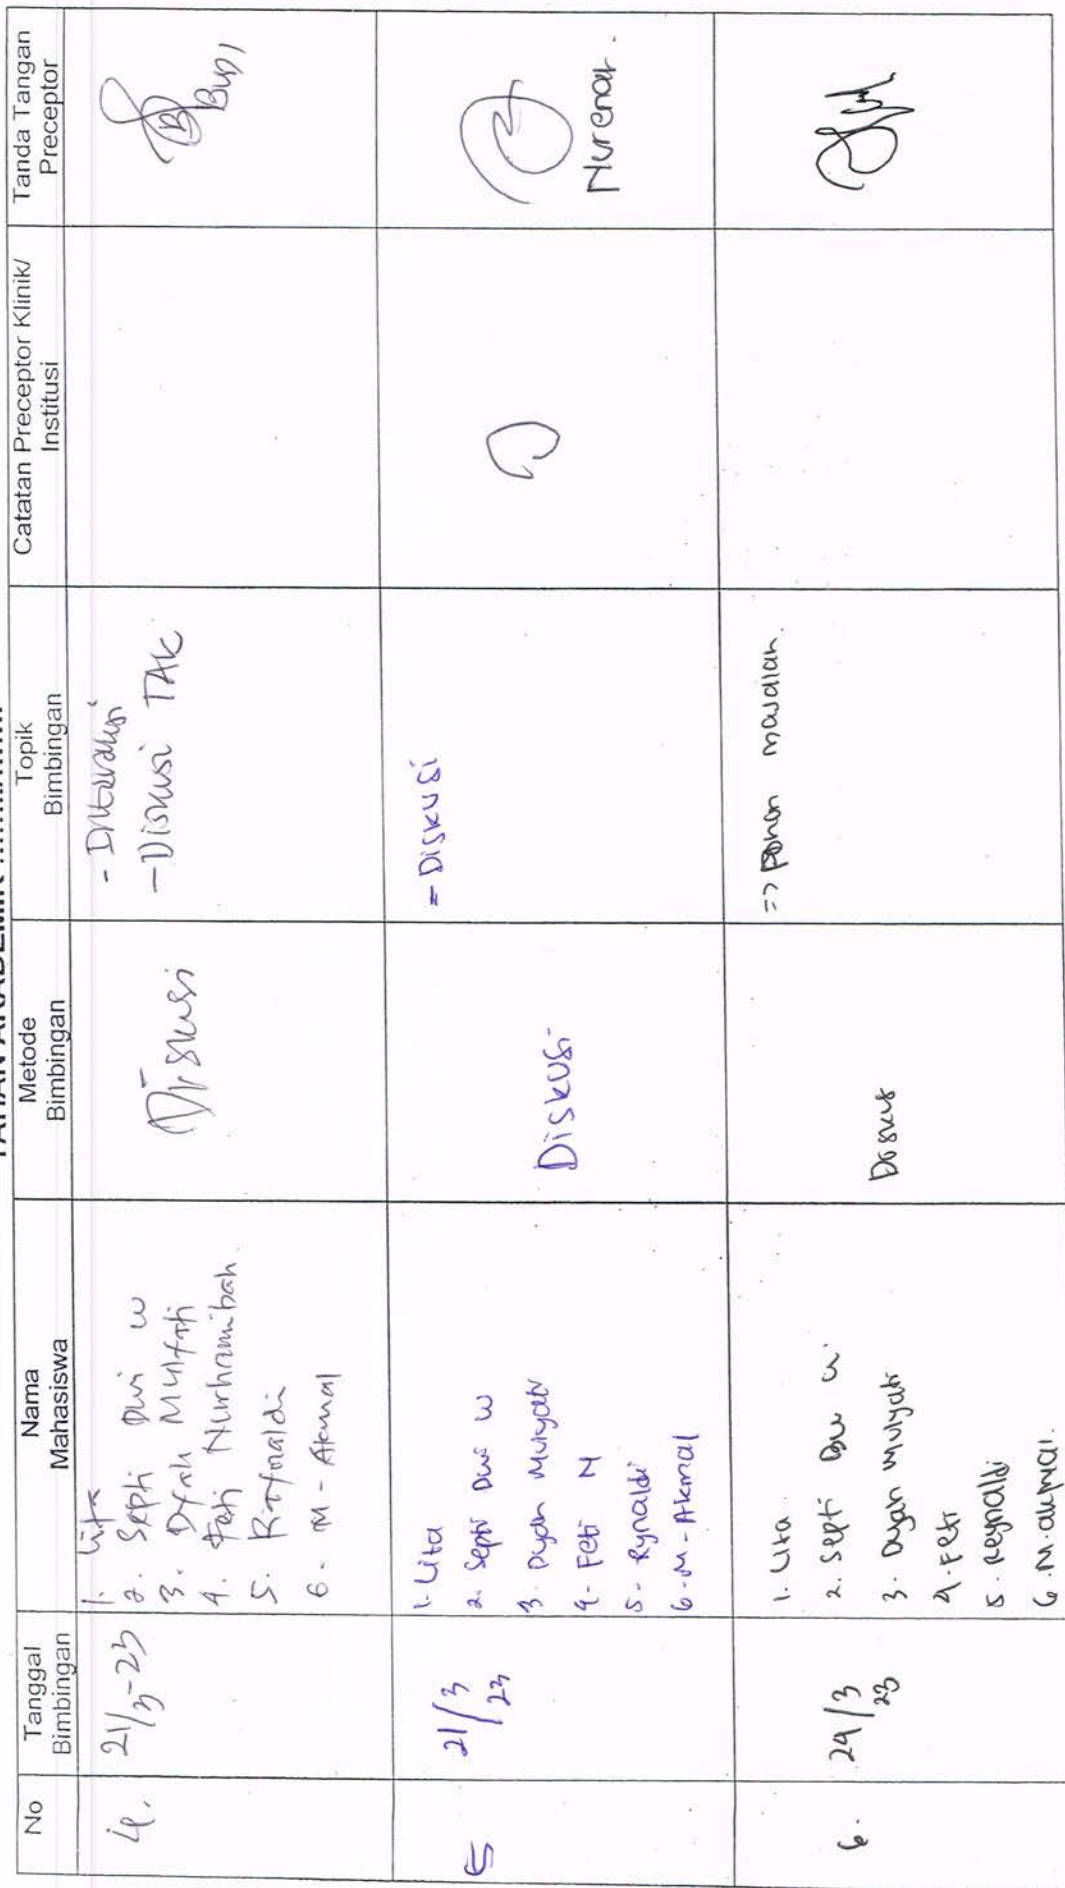 TAHAN AKADEMIK
No
Tanggal
Bimbingan
Nama
Mahasiswa
Metode
Bimbingan
Topik
Bimbingan
Catatan Preceptor Klinik/
Institusi
Tanda Tangan
Preceptor
4.
21/3-23
1. Lita
2. Septi Dwi W
3. Dyah Mulyati
4. Feti Nurhamibah
5. Reynaldi
6. M - Akmal
Diskusi
- Interaksi
- Diskusi TAK
Budi
5
21/3
23
1. Lita
2. Septi Dwi W
3. Dyah Mulyati
4. Feti N
5. Rynaldi
6. M - Akmal
Diskusi
= Diskusi
Nurenar.
6.
24/3
23
1. Lita
2. Septi Dw W.
3. Dyah Mulyati
4. Feti
5. Reynaldi
6. M. Akmal.
Diskus
=> Pohon masalah.